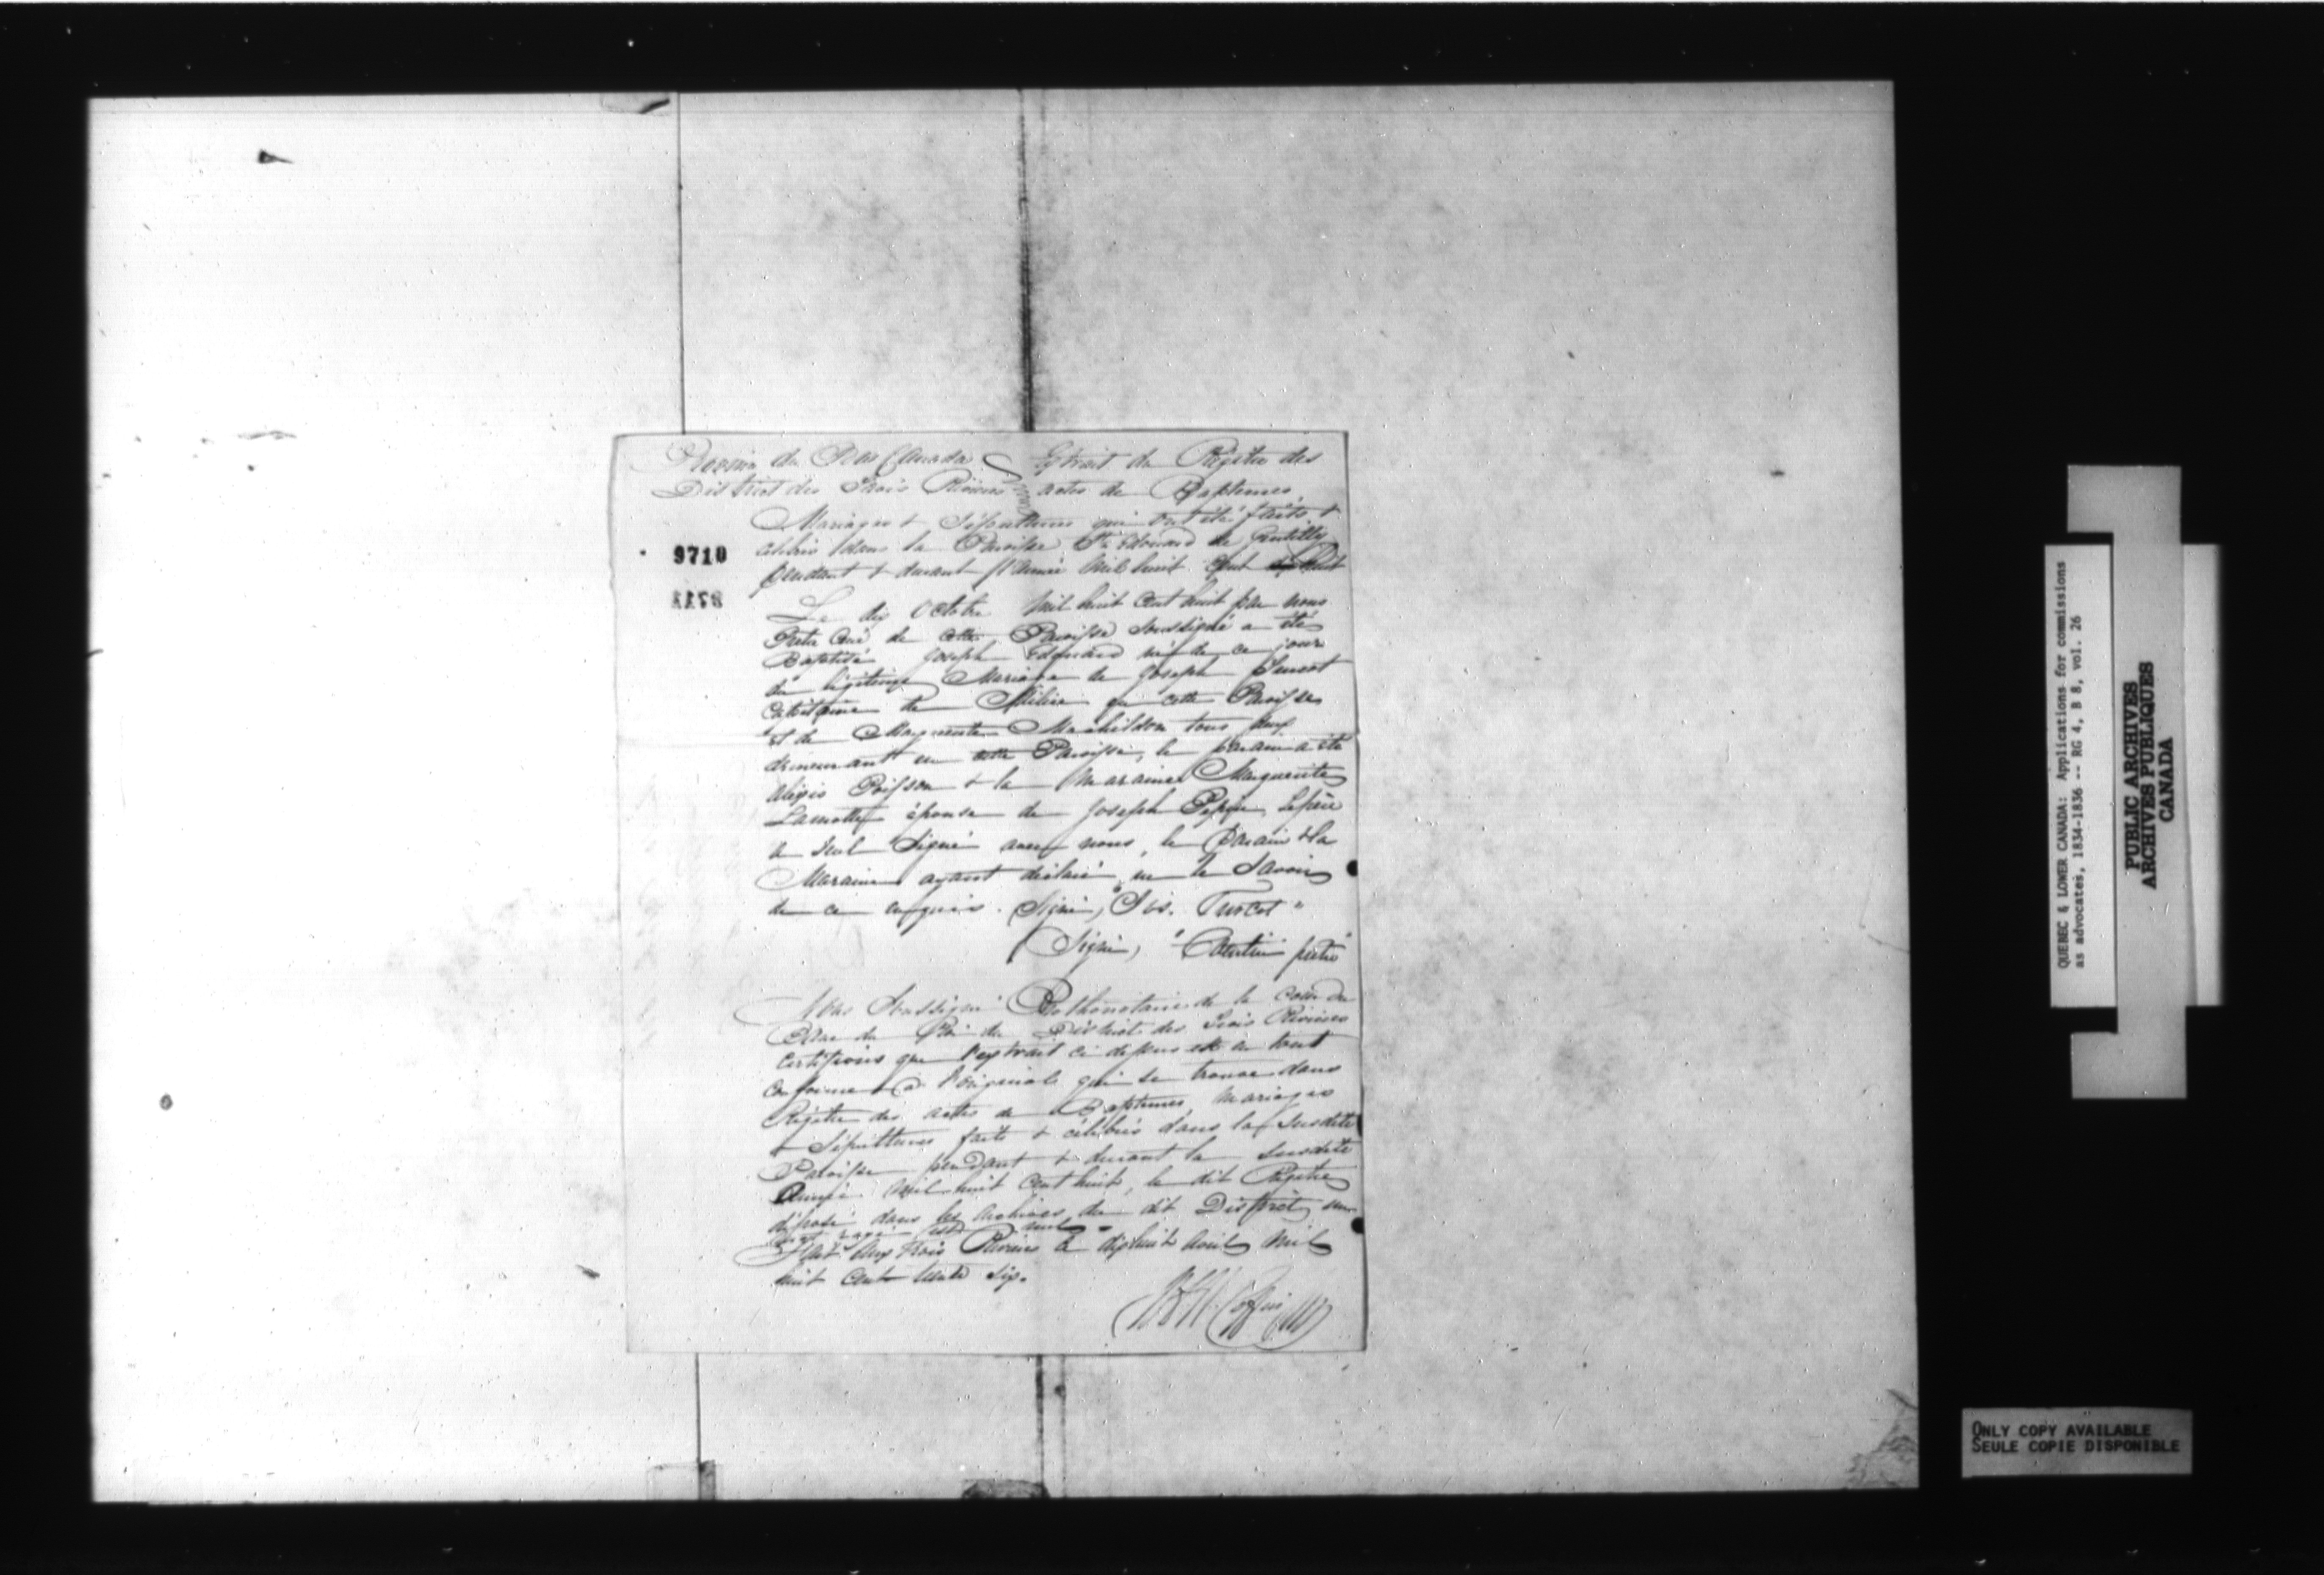 Province du Bas Canada Extrait du Régistre des
District des Trois Rivières actes de Baptemes
Mariages & Sépultures qui ont été faits &
célébrés dans la Paroisse St Edouard de Gentilly
pendant & durant l'année Mil huit Cent
9710
Le dix Octobre Mil huit Cent huit par nous
Prêtre Curé de cette Paroisse Soussigné a été
Baptisé Joseph Edouard né de ce jour
du légitime Mariage de Joseph Turcot
Capitaine de Milice de cette Paroisse
et de Marguerite Marchildon tous deux
demeurant en cette Paroisse, le parain a été
Alexis Poisson & la Maraine Marguerite
Lamotte épouse de Joseph Pepin, Le père
a seul Signé avec nous, le Parain & la
Maraine ayant déclaré ne le Savoir
de ce enquis. (Signé) "Jos. Turcot"
(Signé) " prêtre"
Nous Soussigné Prothonotaire de la Cour du
Banc du Roi du District des Trois Rivières
Certifions que l'extrait ci dessus est en tout
Conforme à l'original qui se trouve dans
Régistre des actes de Baptemes, Mariages
& Sépultures faits & célébrés dans la Susdite
Paroisse pendant & durant la Susdite
Année Mil huit Cent huit, le dit Régistre
déposé dans les Archives du dit District,
Fait aux Trois Rivières le dixhuit Avril Mil
huit Cent trente Six.
QUEBEC & LOWER CANADA: Applications for commissions
as advocates, 1834-1836 -- RG 4, B 8, vol. 26
PUBLIC ARCHIVES
ARCHIVES PUBLIQUES
CANADA
ONLY COPY AVAILABLE
SEULE COPIE DISPONIBLE